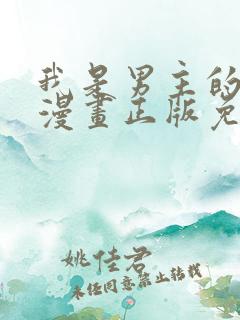 我是男主的
漫畫正版免
姚佳君
未经同意禁止转载